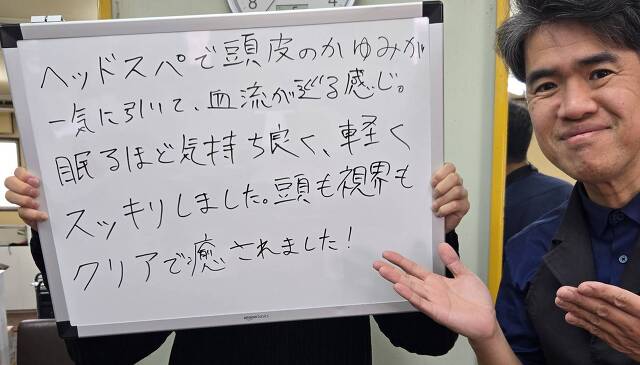 8 4
ヘッドスパで頭皮のかゆみが
一気に引いて、血流が巡る感じ。
眠るほど気持ち良く、軽く
スッキリしました。頭も視界も
クリアで癒されました！
amazonbasics